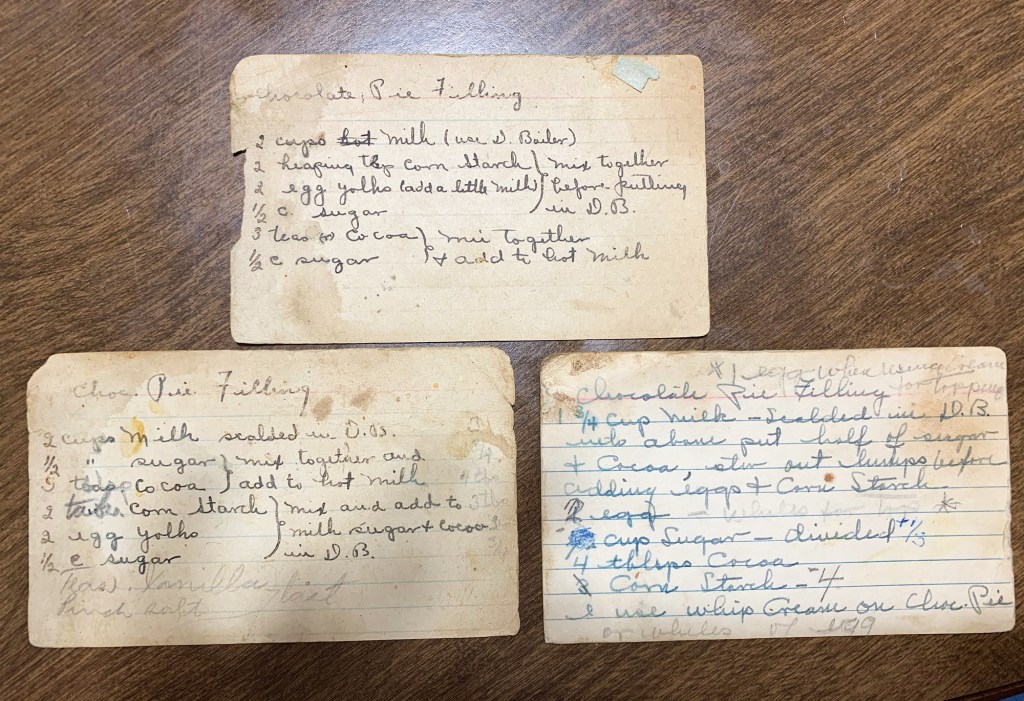 Chocolate, Pie Filling
2 cups hot milk (use D. Boiler)
2 heaping tbsp Corn Starch } mix together
2 egg yolks (add a little milk) } before putting
1/2 c. sugar } in D.B.
3 teas Cocoa } mix together
1/2 c sugar } & add to hot milk
Choc. Pie Filling
2 cups Milk scalded in D.B.
1/2 " sugar } mix together and
Cocoa } add to hot milk
2 Corn Starch } mix and add to
2 egg yolks } milk sugar & cocoa
1/2 c sugar } in D.B.
Teas. Vanilla last
Pinch salt
*1 egg when using cream
Chocolate Pie Filling for topping
1 3/4 Cup Milk – Scalded in D.B.
into above put half of sugar
& Cocoa, stir out lumps before
adding eggs & Corn Starch
2 egg – whites for top *
cup Sugar – divided + 1/3
4 tblsps Cocoa
Corn Starch – 4
I use whip Cream on Choc. Pie
or whites of egg